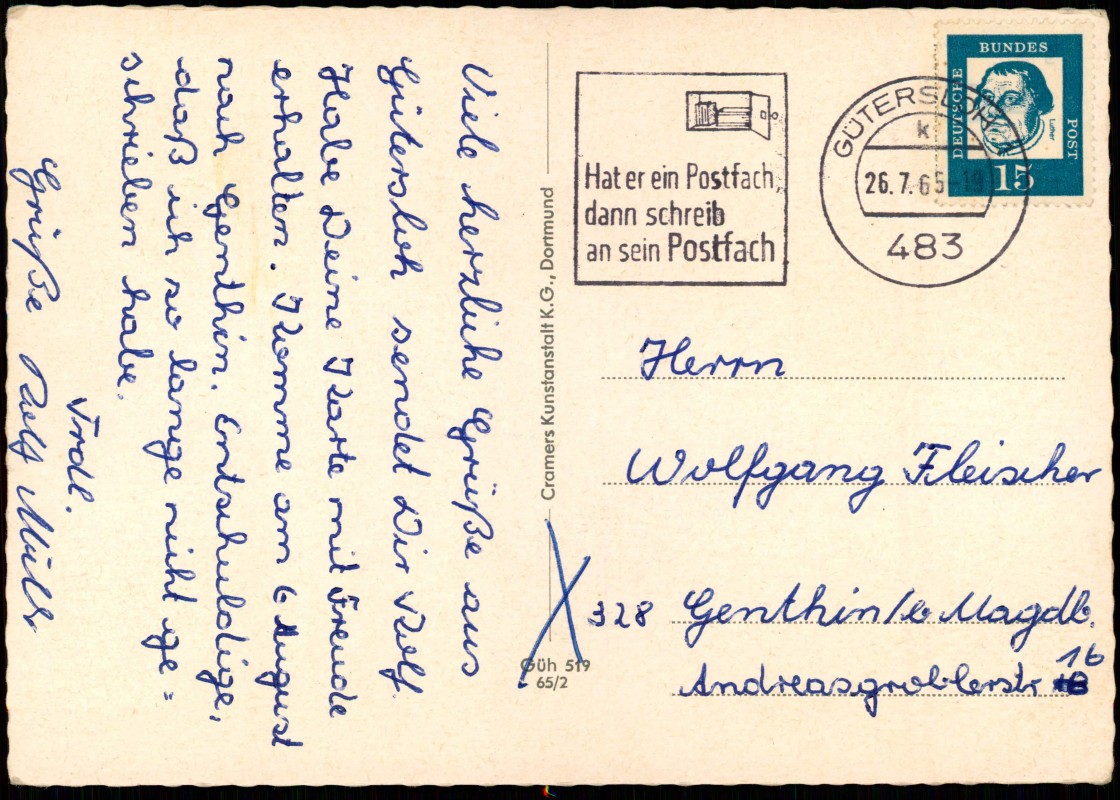 Viele herzliche Grüße aus
Gütersloh sendet Dir Rolf.
Habe Deine Karte mit Freude
erhalten. Komme am 6 August
nach Genthin. Entschuldige,
daß ich so lange nicht ge=
schrieben habe.
Frdl.
Grüße Rolf
Cramers Kunstanstalt K.G., Dortmund
Güh 519
65/2
Hat er ein Postfach,
dann schreib
an sein Postfach
GÜTERSLOH
k
26.7.65-19
483
DEUTSCHE BUNDES POST
Luther
15
Herrn
Wolfgang Fleischer
328 Genthin/b Magdb.
Andreasgroblerstr 16